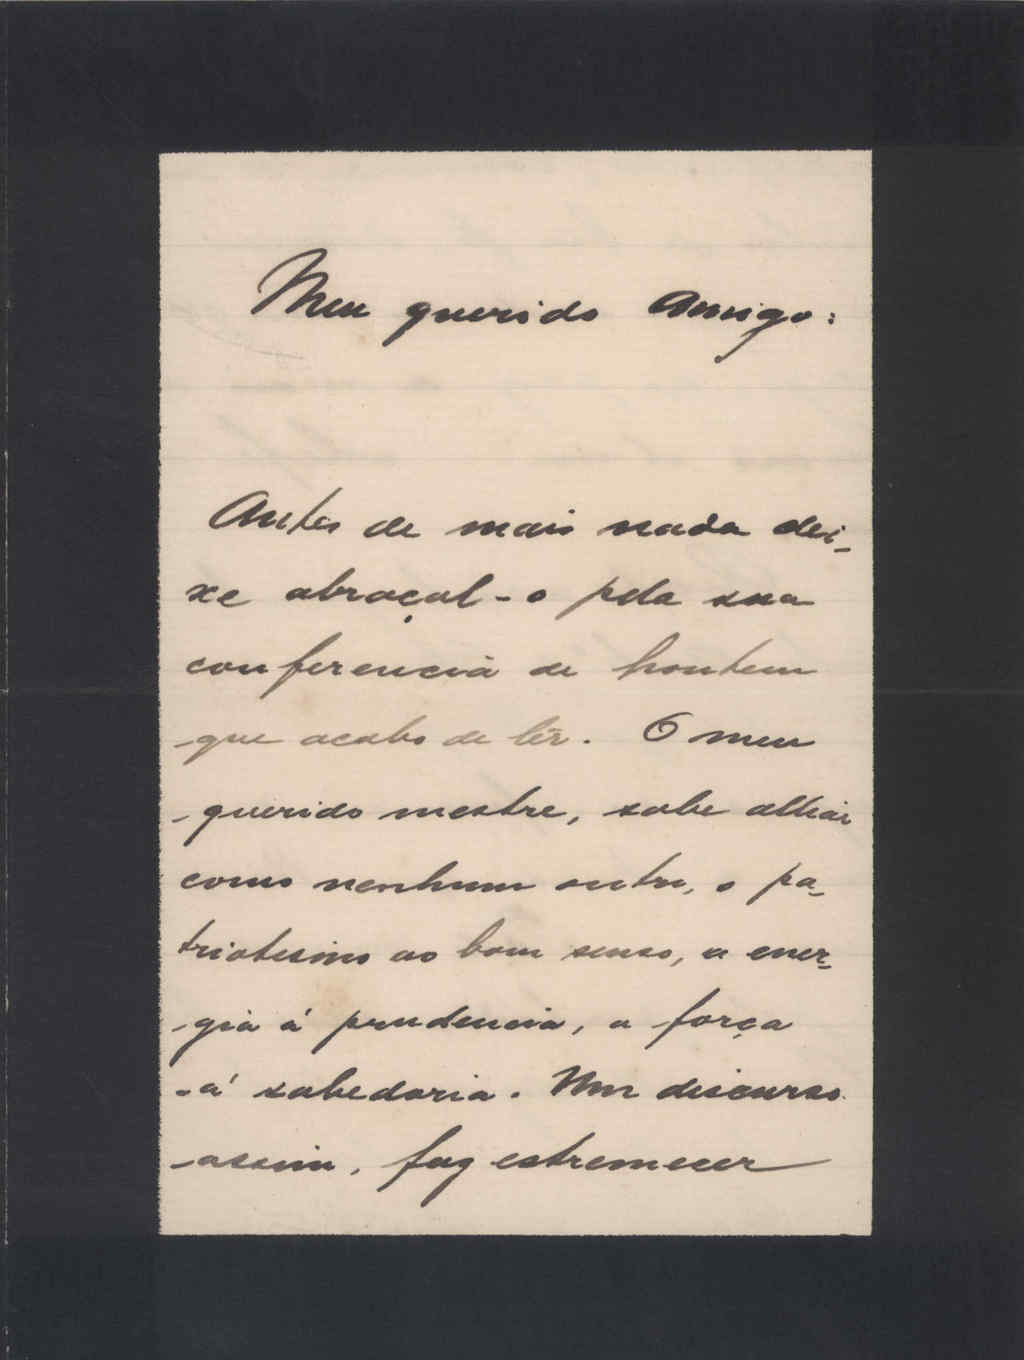 Meu querido Amigo:
Antes de mais nada dei-
xe abraçal-o pela sua
conferencia de hontem
que acabo de lêr. O meu
querido mestre, sabe alliar
como nenhum outro, o pa-
triotismo ao bom senso, a ener-
gia á prudencia, a força
á sabedoria. Um discurso
assim, faz estremecer